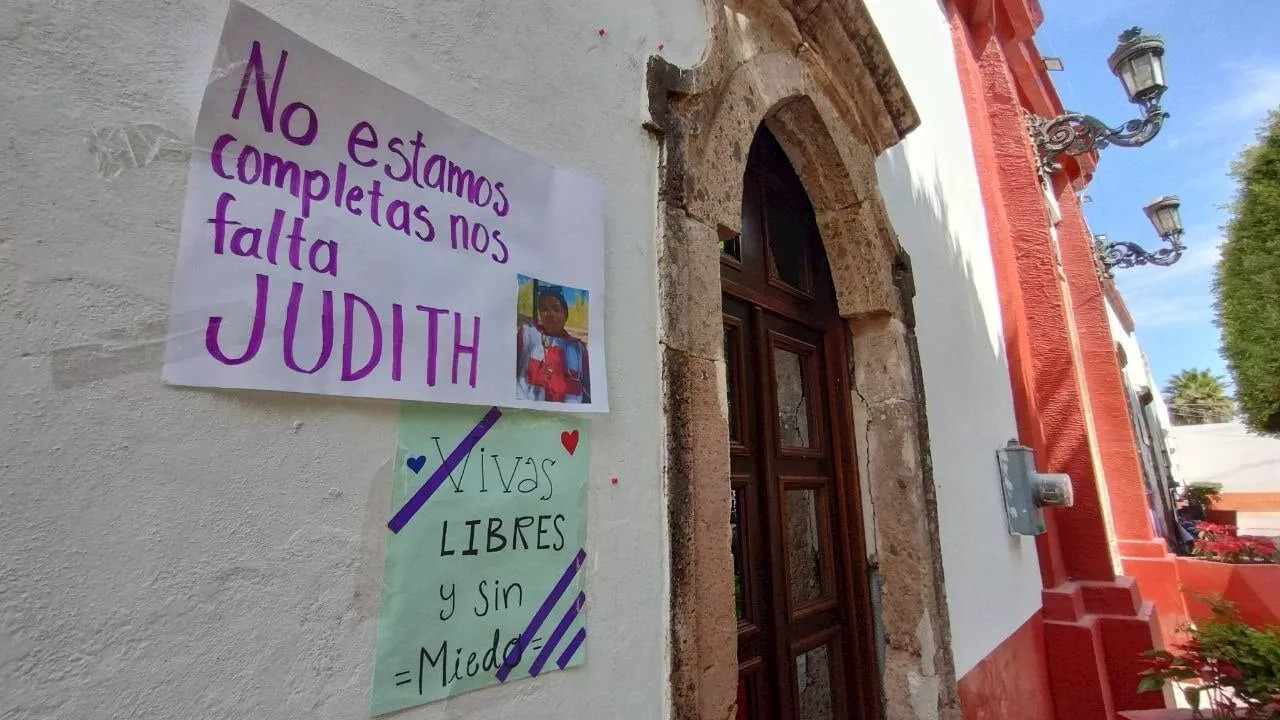 No estamos
completas nos
falta
JUDITH
Vivas
LIBRES
y sin
=Miedo=